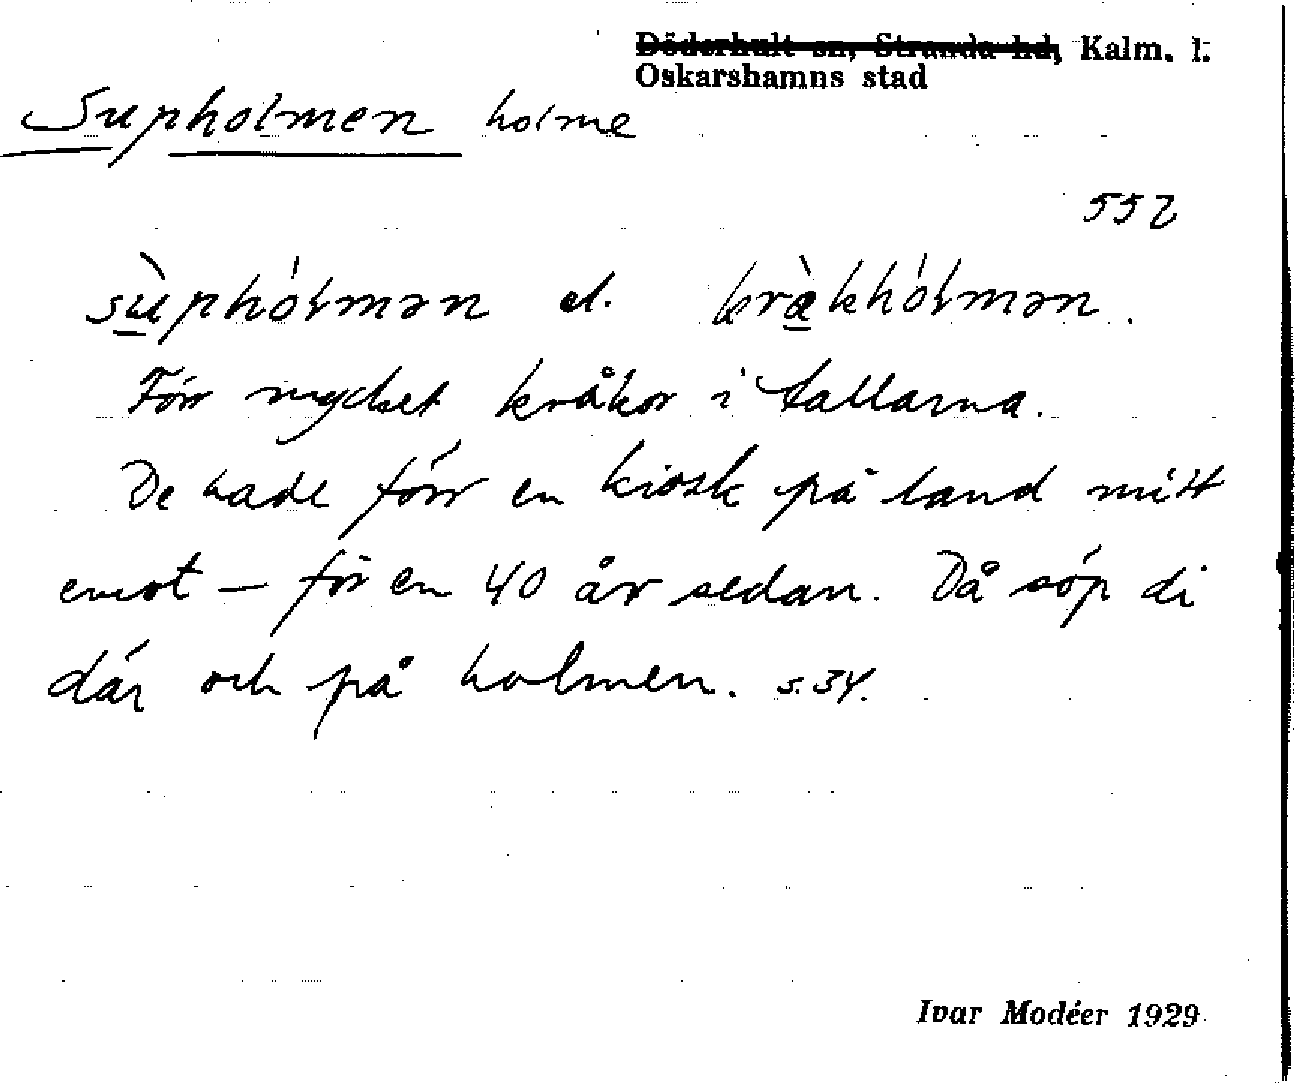 Döderhult sn, Stranda hd, Kalm. l.
Oskarshamns stad
Supholmen holme
552
sùphólmən el. kræ̀khólmən.
Förr mycket kråkor i tallarna.
De hade förr en kiosk på land mitt
emot – för en 40 år sedan. Då söp di
där och på holmen. s. 34.
Ivar Modéer 1929